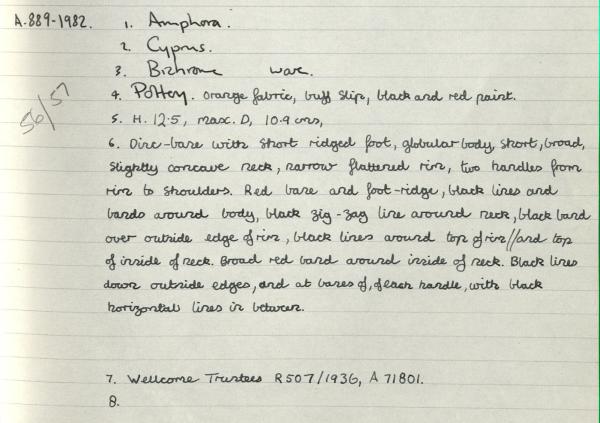 A.889-1982. 1. Amphora.
2. Cyprus.
3. Bichrome ware.
56/57
4. Pottery. Orange fabric, buff slip, black and red paint.
5. H. 12.5, max. D, 10.9 cms,
6. Disc-base with short ridged foot, globular body, short, broad,
slightly concave neck, narrow flattened rim, two handles from
rim to shoulders. Red base and foot-ridge, black lines and
bands around body, black zig-zag line around neck, black band
over outside edge of rim, black lines around top of rim//and top
of inside of neck. Broad red band around inside of neck. Black lines
down outside edges, and at bases of, of each handle, with black
horizontal lines in between.
7. Wellcome Trustees R507/1936, A 71801.
8.